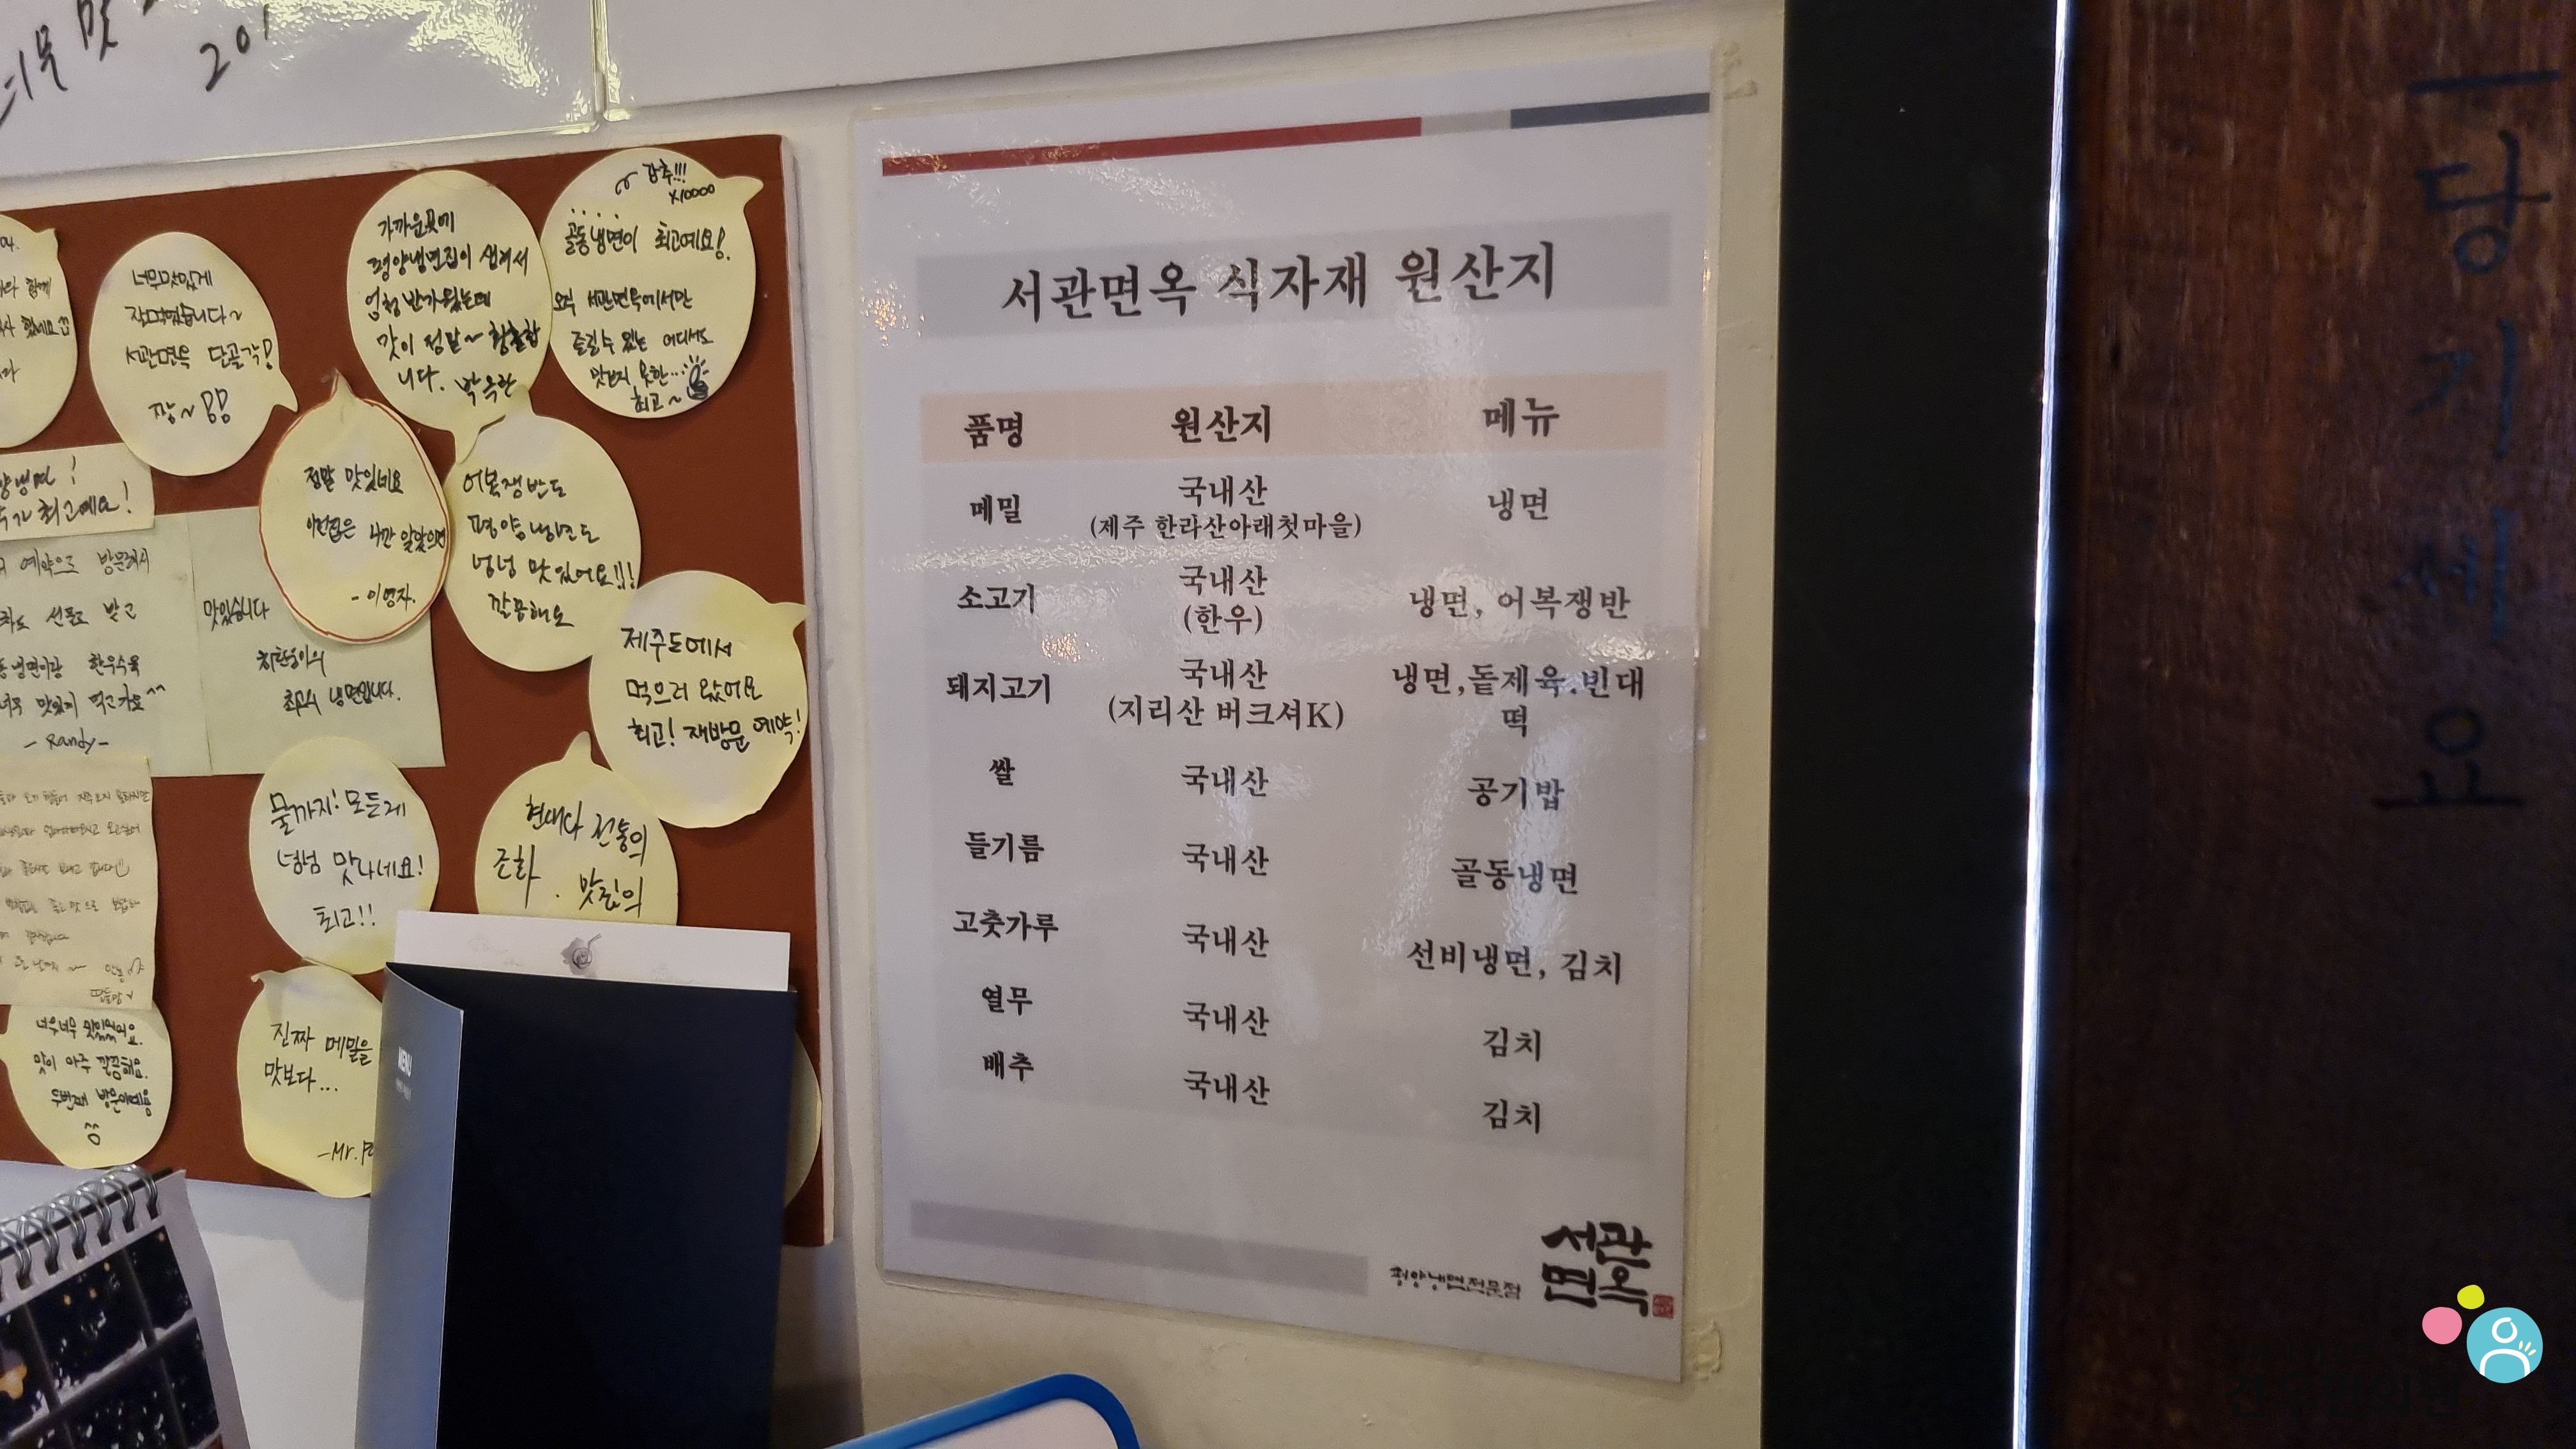 너무 맛
201
강추!!!
X10000
골동냉면이 최고예요!
오직 서관면옥에서만
즐길수 있는 어디서도
맛보지 못한...
최고~
가까운곳에
평양냉면집이 생겨서
엄청 반가웠는데
맛이 정말~ 황홀합
니다.
너무맛있게
잘먹었습니다~
서관면옥 단골각!
짱~!!
정말 맛있네요
이런집은 나만 알았으면
-이영자.
어복쟁반도
평양냉면도
넝넝 맛있어요!!!
깔끔해요
최고예요!
예약으로 방문해서
선물도 받고
냉면이랑 한우수육
너무 맛있게 먹고가요^^
-Randy-
맛있습니다
최고의 냉면입니다.
제주도에서
먹으러 왔어요
최고! 재방문 예약!
물까지! 모든게
넘넘 맛나네요!
최고!!
현대와 전통의
조화. 맛집의
너무너무 맛있었어요.
맛이 아주 깔끔해요.
두번째 방문이예용
진짜 메밀을
맛보다...
-Mr.
MENU
서관면옥 식자재 원산지
품명 원산지 메뉴
메밀 국내산 냉면
(제주 한라산아래첫마을)
소고기 국내산 냉면, 어복쟁반
(한우)
돼지고기 국내산 냉면,돝제육.빈대
(지리산 버크셔K) 떡
쌀 국내산 공기밥
들기름 국내산 골동냉면
고춧가루 국내산 선비냉면, 김치
열무 국내산 김치
배추 국내산 김치
평양냉면전문점
서관
면옥
당기세요